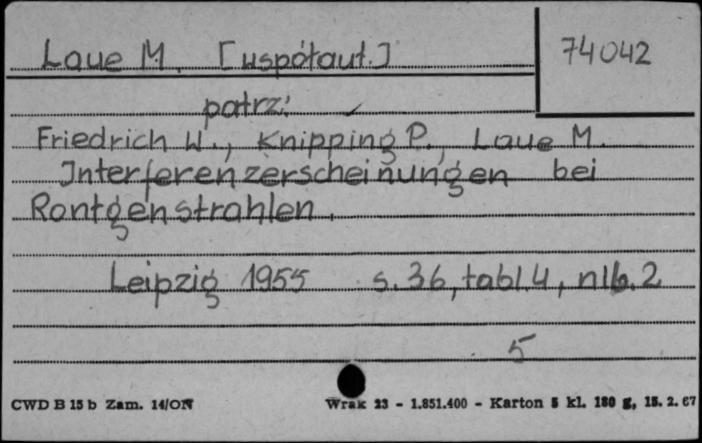 Laue M. [współaut.]
74042
patrz:
Friedrich W., Knipping P., Laue M.
Interferenzerscheinungen bei
Rontgenstrahlen.
Leipzig 1955 s. 36, tabl. 4, nlb. 2
5
CWD B 15 b Zam. 14/ON Wrak 23 - 1.851.400 - Karton 5 kl. 180 g, 15. 2. 67